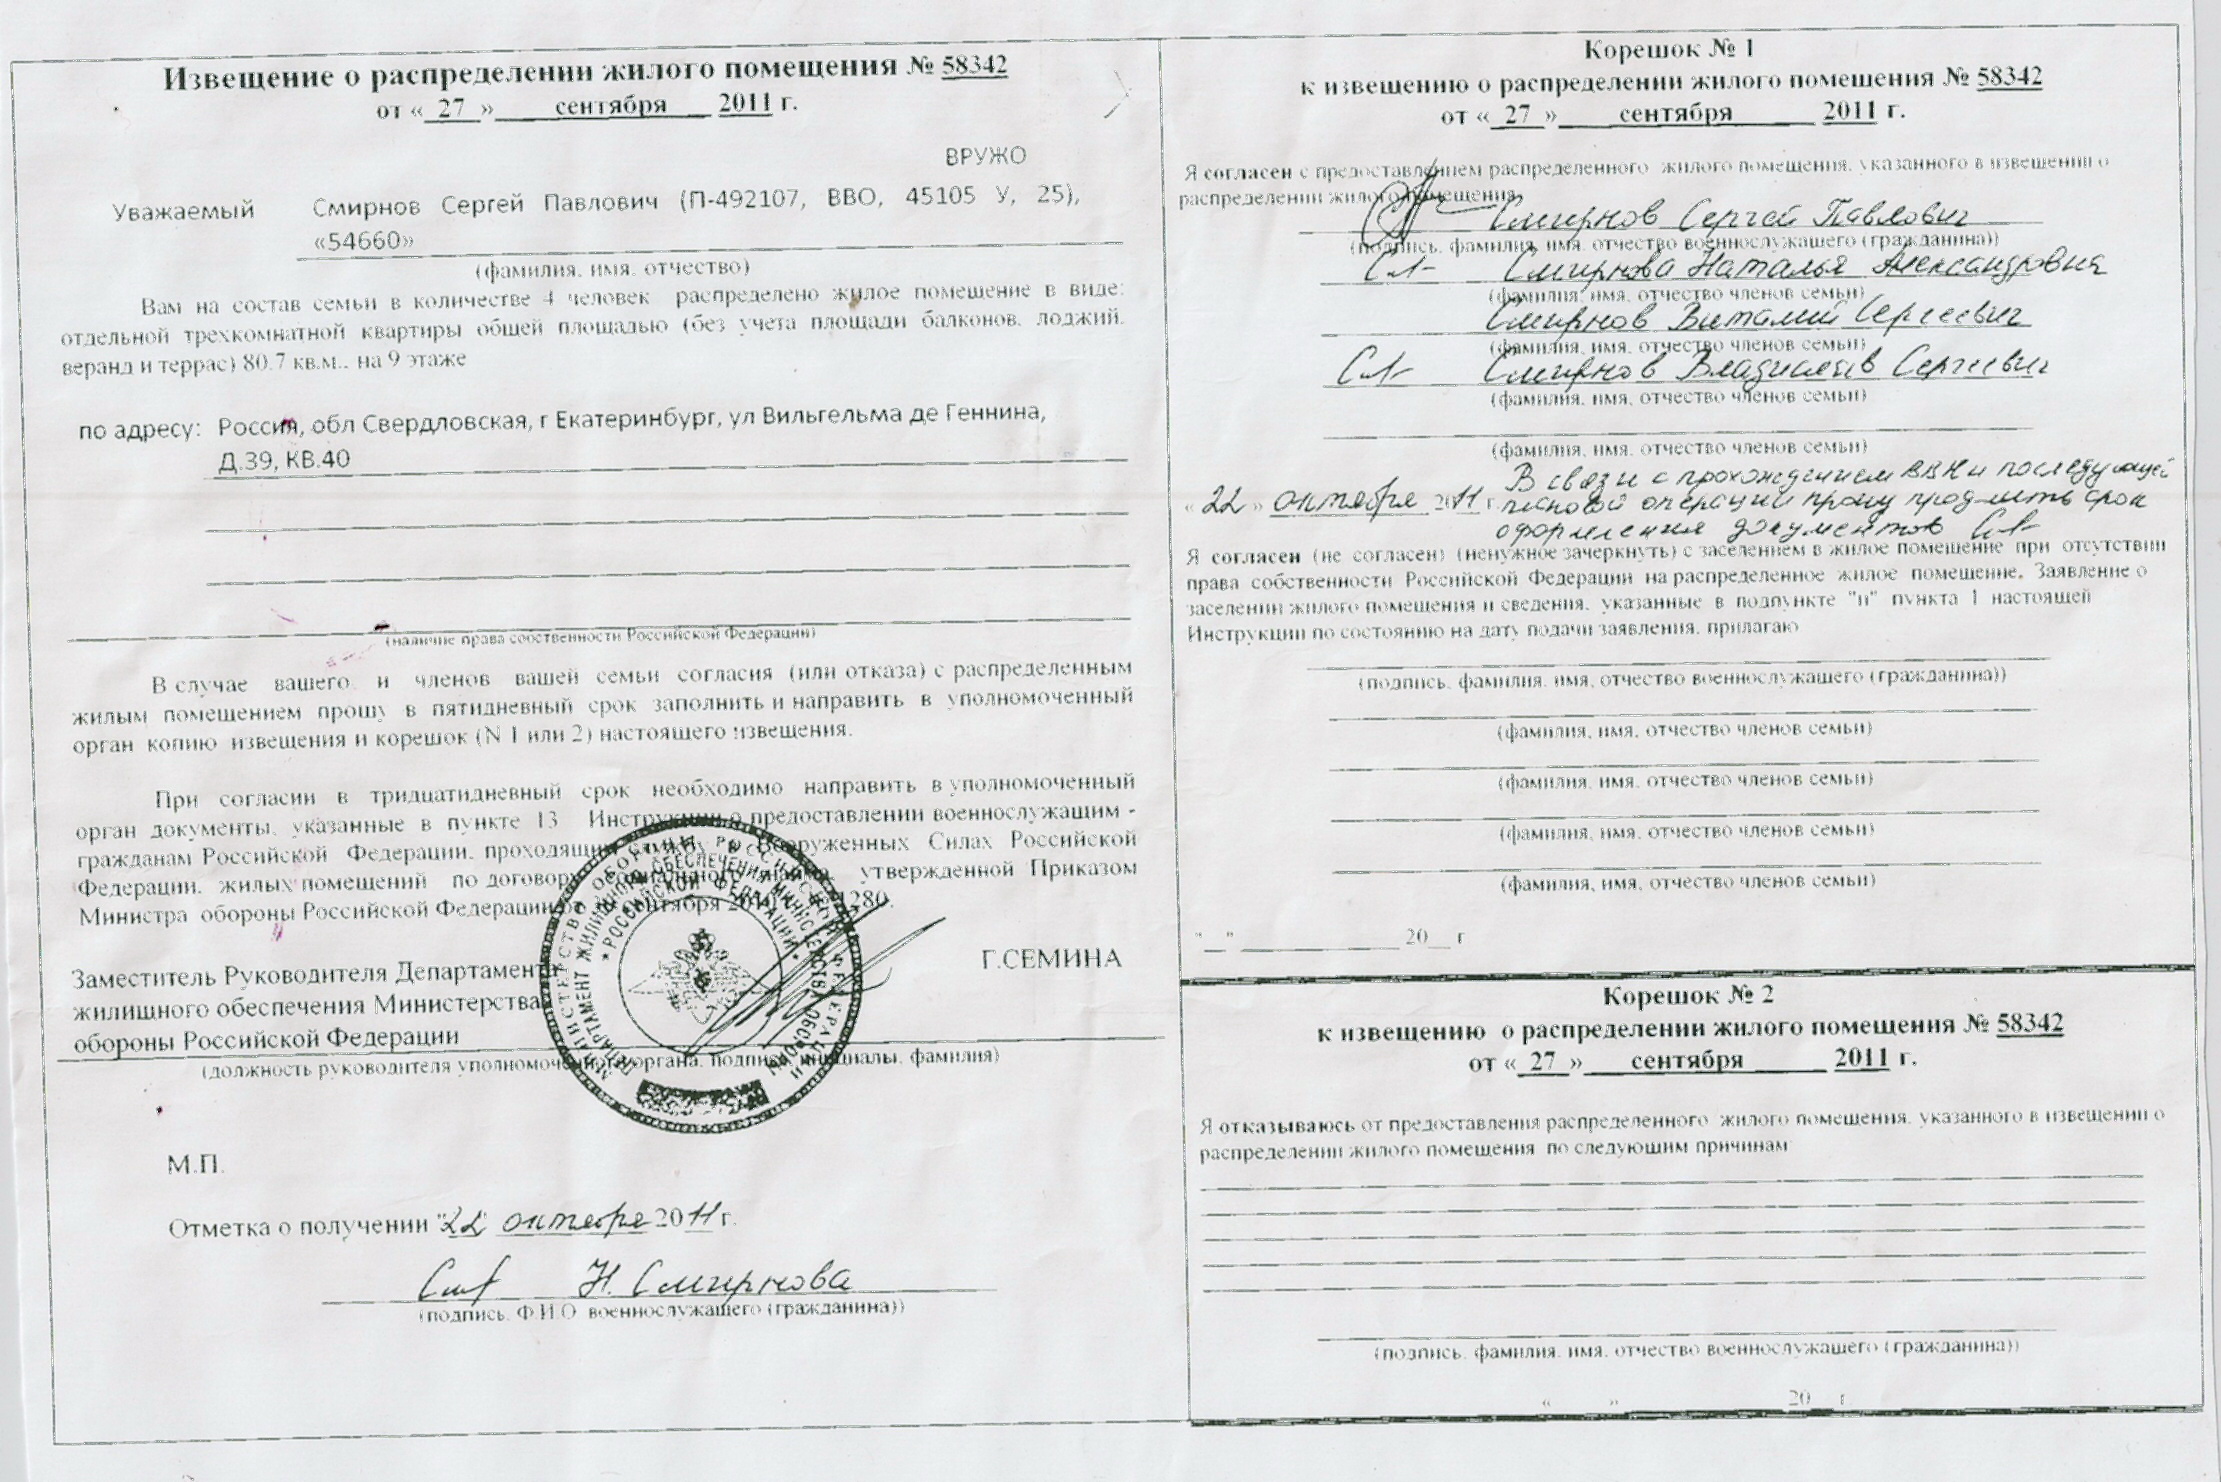 Извещение о распределении жилого помещения № 58342
от « 27 » сентября 2011 г.
ВРУЖО
Уважаемый Смирнов Сергей Павлович (П-492107, ВВО, 45105 У, 25),
«54660»
(фамилия, имя, отчество)
Вам на состав семьи в количестве 4 человек распределено жилое помещение в виде:
отдельной трехкомнатной квартиры общей площадью (без учета площади балконов, лоджий,
веранд и террас) 80.7 кв.м., на 9 этаже
по адресу: Россия, обл Свердловская, г Екатеринбург, ул Вильгельма де Геннина,
Д.39, КВ.40
(наличие права собственности Российской Федерации)
В случае вашего и членов вашей семьи согласия (или отказа) с распределенным
жилым помещением прошу в пятидневный срок заполнить и направить в уполномоченный
орган копию извещения и корешок (N 1 или 2) настоящего извещения.
При согласии в тридцатидневный срок необходимо направить в уполномоченный
орган документы, указанные в пункте 13 Инструкции о предоставлении военнослужащим -
гражданам Российской Федерации, проходящим службу в Вооруженных Силах Российской
Федерации, жилых помещений по договору социального найма, утвержденной Приказом
Министра обороны Российской Федерации сентября 1280.
Заместитель Руководителя Департамента
жилищного обеспечения Министерства
обороны Российской Федерации
Г.СЕМИНА
(должность руководителя уполномоченного органа, подпись, инициалы, фамилия)
МИНИСТЕРСТВО ОБОРОНЫ РОССИЙСКОЙ ФЕДЕРАЦИИ
ДЕПАРТАМЕНТ ЖИЛИЩНОГО ОБЕСПЕЧЕНИЯ МИНИСТЕРСТВА ОБОРОНЫ
* РОССИЙСКОЙ ФЕДЕРАЦИИ *
М.П.
Отметка о получении "22" октября 2011 г.
Н. Смирнова
(подпись, Ф.И.О. военнослужащего (гражданина))
Корешок № 1
к извещению о распределении жилого помещения № 58342
от « 27 » сентября 2011 г.
Я согласен с предоставлением распределенного жилого помещения, указанного в извещении о
распределении жилого помещения
Смирнов Сергей Павлович
(подпись, фамилия, имя, отчество военнослужащего (гражданина))
Смирнова Наталья Александровна
(фамилия, имя, отчество членов семьи)
Смирнов Виталий Сергеевич
(фамилия, имя, отчество членов семьи)
Смирнов Владислав Сергеевич
(фамилия, имя, отчество членов семьи)
(фамилия, имя, отчество членов семьи)
В связи с прохождением ВВК и последующей
« 22 » октября 2011 г. плановой операции прошу продлить срок
оформления документов
Я согласен (не согласен) (ненужное зачеркнуть) с заселением в жилое помещение при отсутствии
права собственности Российской Федерации на распределенное жилое помещение. Заявление о
заселении жилого помещения и сведения, указанные в подпункте "и" пункта 1 настоящей
Инструкции по состоянию на дату подачи заявления, прилагаю
(подпись, фамилия, имя, отчество военнослужащего (гражданина))
(фамилия, имя, отчество членов семьи)
(фамилия, имя, отчество членов семьи)
(фамилия, имя, отчество членов семьи)
(фамилия, имя, отчество членов семьи)
"__" ______________ 20__ г
Корешок № 2
к извещению о распределении жилого помещения № 58342
от « 27 » сентября 2011 г.
Я отказываюсь от предоставления распределенного жилого помещения, указанного в извещении о
распределении жилого помещения по следующим причинам
(подпись, фамилия, имя, отчество военнослужащего (гражданина))
«____» ______________ 20__ г